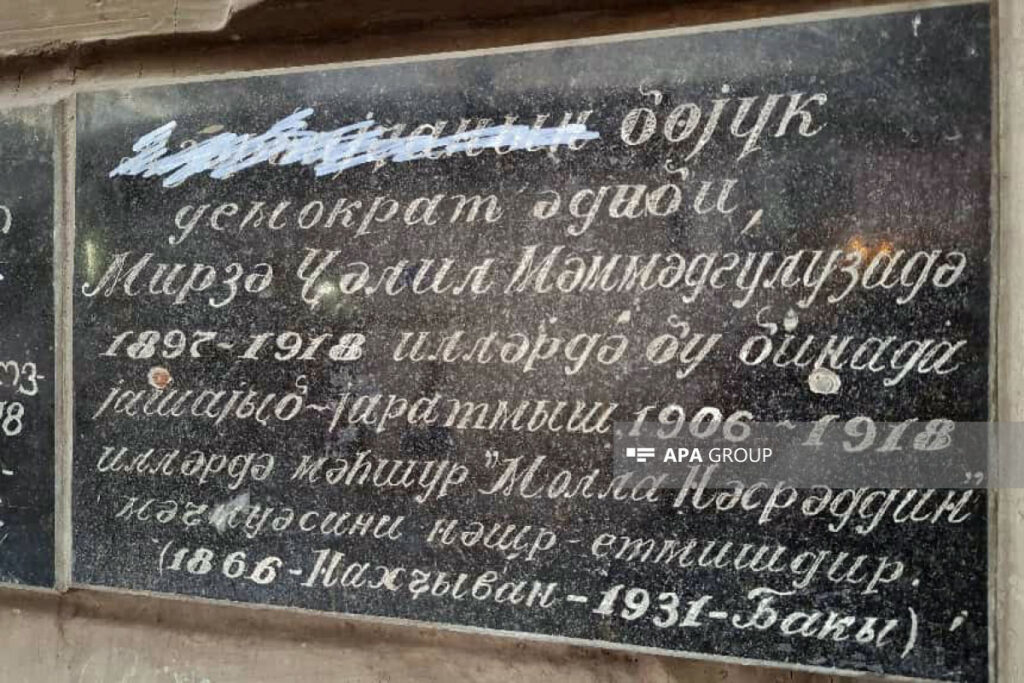 бөјүк
демократ әдиби,
Мирзә Ҹәлил Мәммәдгулузадә
1897-1918 илләрдә бу бинада
јашајыб-јаратмыш 1906-1918
илләрдә мәһшур "Молла Нәсрәддин"
мәҹмуәсини нәшр-етмишдир.
(1866-Нахҹыван-1931-Бакы)
APA GROUP